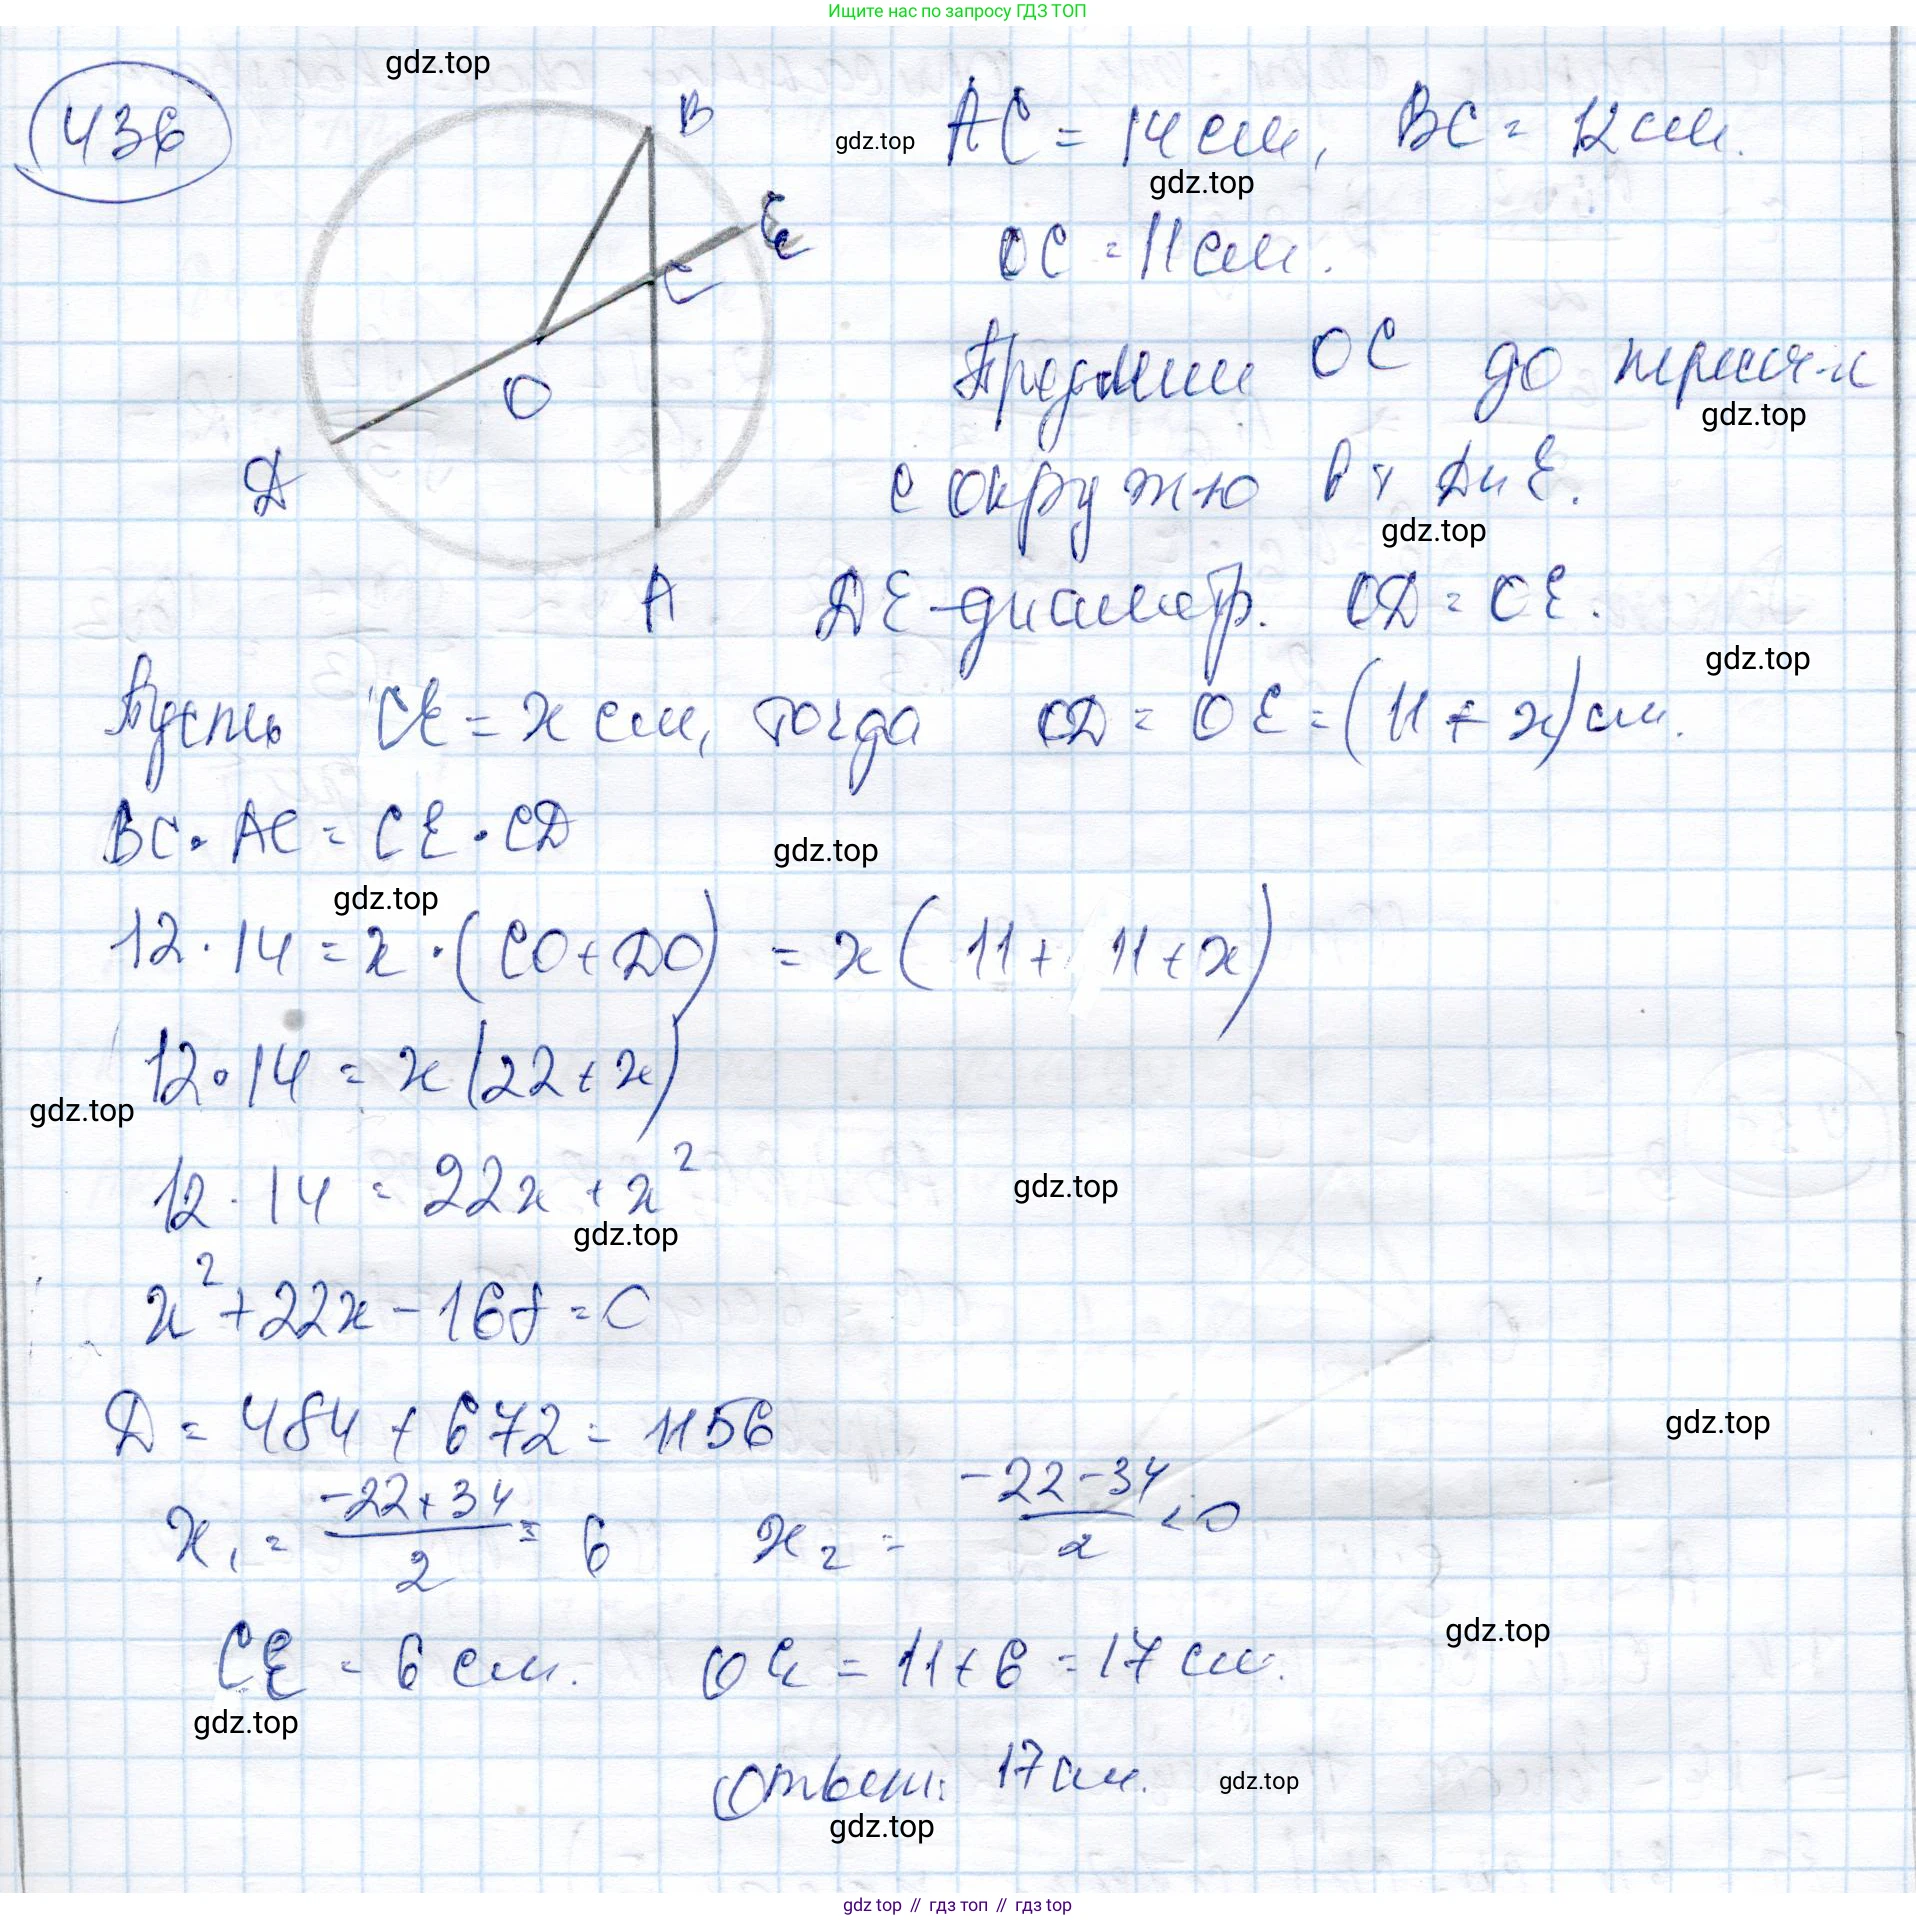 Ищите нас по запросу ГДЗ ТОП
gdz.top
436
B
E
C
O
D
A
AC = 14 см, BC = 12 см.
gdz.top
gdz.top
OC = 11 см.
Продлим OC до пересеч-я
gdz.top
с окруж-ю в т D и E.
gdz.top
DE - диаметр. OD = OE.
gdz.top
Пусть CE = x см, тогда OD = OE = (11 + x) см.
BC · AC = CE · CD
gdz.top
gdz.top
12 · 14 = x · (CO + DO) = x (11 + 11 + x)
12 · 14 = x (22 + x)
gdz.top
12 · 14 = 22x + x²
gdz.top
gdz.top
x² + 22x - 168 = 0
D = 484 + 672 = 1156
gdz.top
x₁ = (-22 + 34)/2 = 6 x₂ = (-22 - 34)/2 < 0
CE = 6 см. OE = 11 + 6 = 17 см.
gdz.top
gdz.top
Ответ: 17 см.
gdz.top
gdz.top
gdz top // гдз топ // гдз top